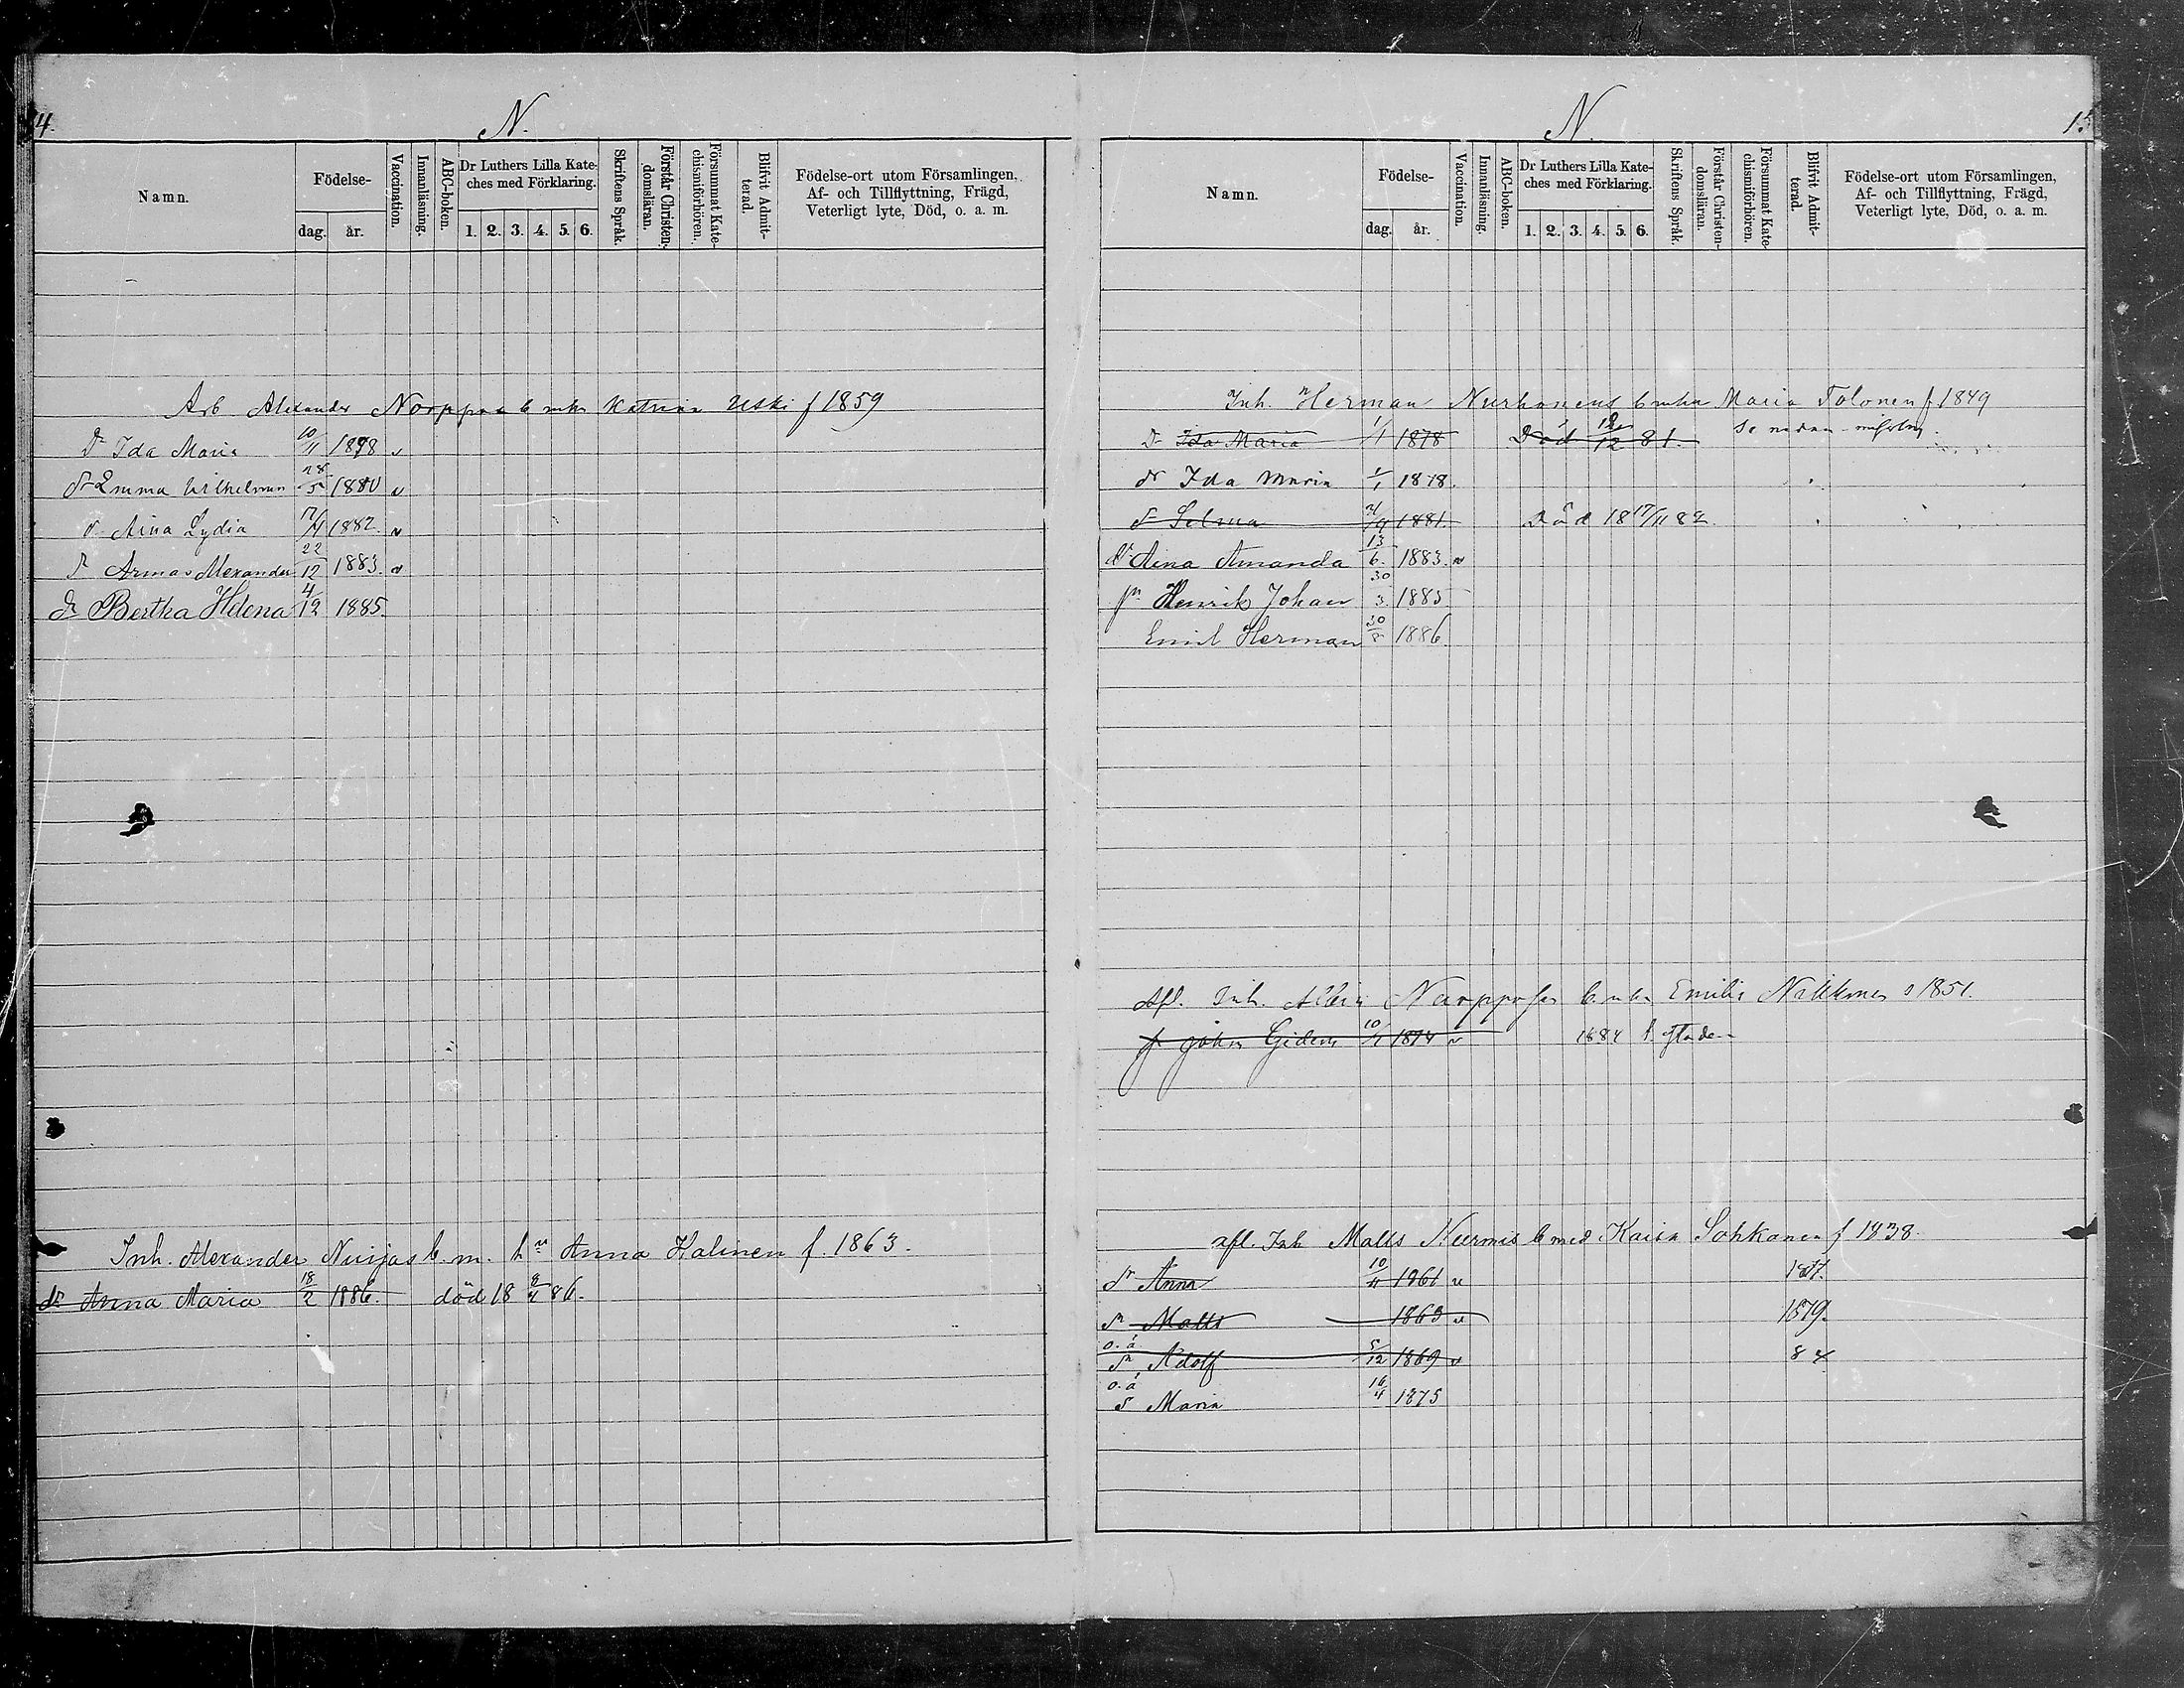 4.
N.
Namn.
Födelse-
dag.
år.
Vaccination.
Innanläsning.
ABC-boken.
Dr Luthers Lilla Kate-
ches med Förklaring.
1. 2. 3. 4. 5. 6.
Skriftens Språk.
Förstår Christen-
domsläran.
Försummat Kate-
chismiförhören.
Blifvit Admit-
terad.
Födelse-ort utom Församlingen,
Af- och Tillflyttning, Frägd,
Veterligt lyte, Död, o. a. m.
Arb Alexander Norppas b mhu Katrina Uski f 1859
Dr Ida Maria 10/11 1878 v
dr Emma Wilhelmin 28/5 1880 v
dr Aina Lydia 17/4 1882 v
sn Armas Alexander 22/12 1883. v
dr Bertha Helena 4/12 1885.
Inh. Alexander Nuijas b. m. hn Anna Halinen f. 1863.
dr Anna Maria 18/2 1886. död 18 8/4 86.
N.
15
Namn.
Födelse-
dag.
år.
Vaccination.
Innanläsning.
ABC-boken.
Dr Luthers Lilla Kate-
ches med Förklaring.
1. 2. 3. 4. 5. 6.
Skriftens Språk.
Förstår Christen-
domsläran.
Försummat Kate-
chismiförhören.
Blifvit Admit-
terad.
Födelse-ort utom Församlingen,
Af- och Tillflyttning, Frägd,
Veterligt lyte, Död, o. a. m.
Inh. Herman Nurhonens b mhu Maria Tolonen f 1849
Dr Ida Maria 1/1 1878 Död 12/12 81. Se nedan
dr Ida Maria 1/1 1878.
dr Selma 21/9 1881. Död 18 17/11 82.
dr Aina Amanda 13/6 1883. v
sn Henrik Johan 30/3 1885
Emil Herman 30/8 1886.
Afl. Inh. Albin Norppas b mhu Emilia f 1851.
s Johan Gideon 10/1 1874 v 1884
afl. Inh Matts Nurmis b med Kaisa Sohkanen f 1838.
dr Anna 10/11 1861 v 1877.
sn Matts 1863 v 1879.
o. ä
sn Adolf 5/12 1869 v 84
o. ä
d Maria 16/4 1875